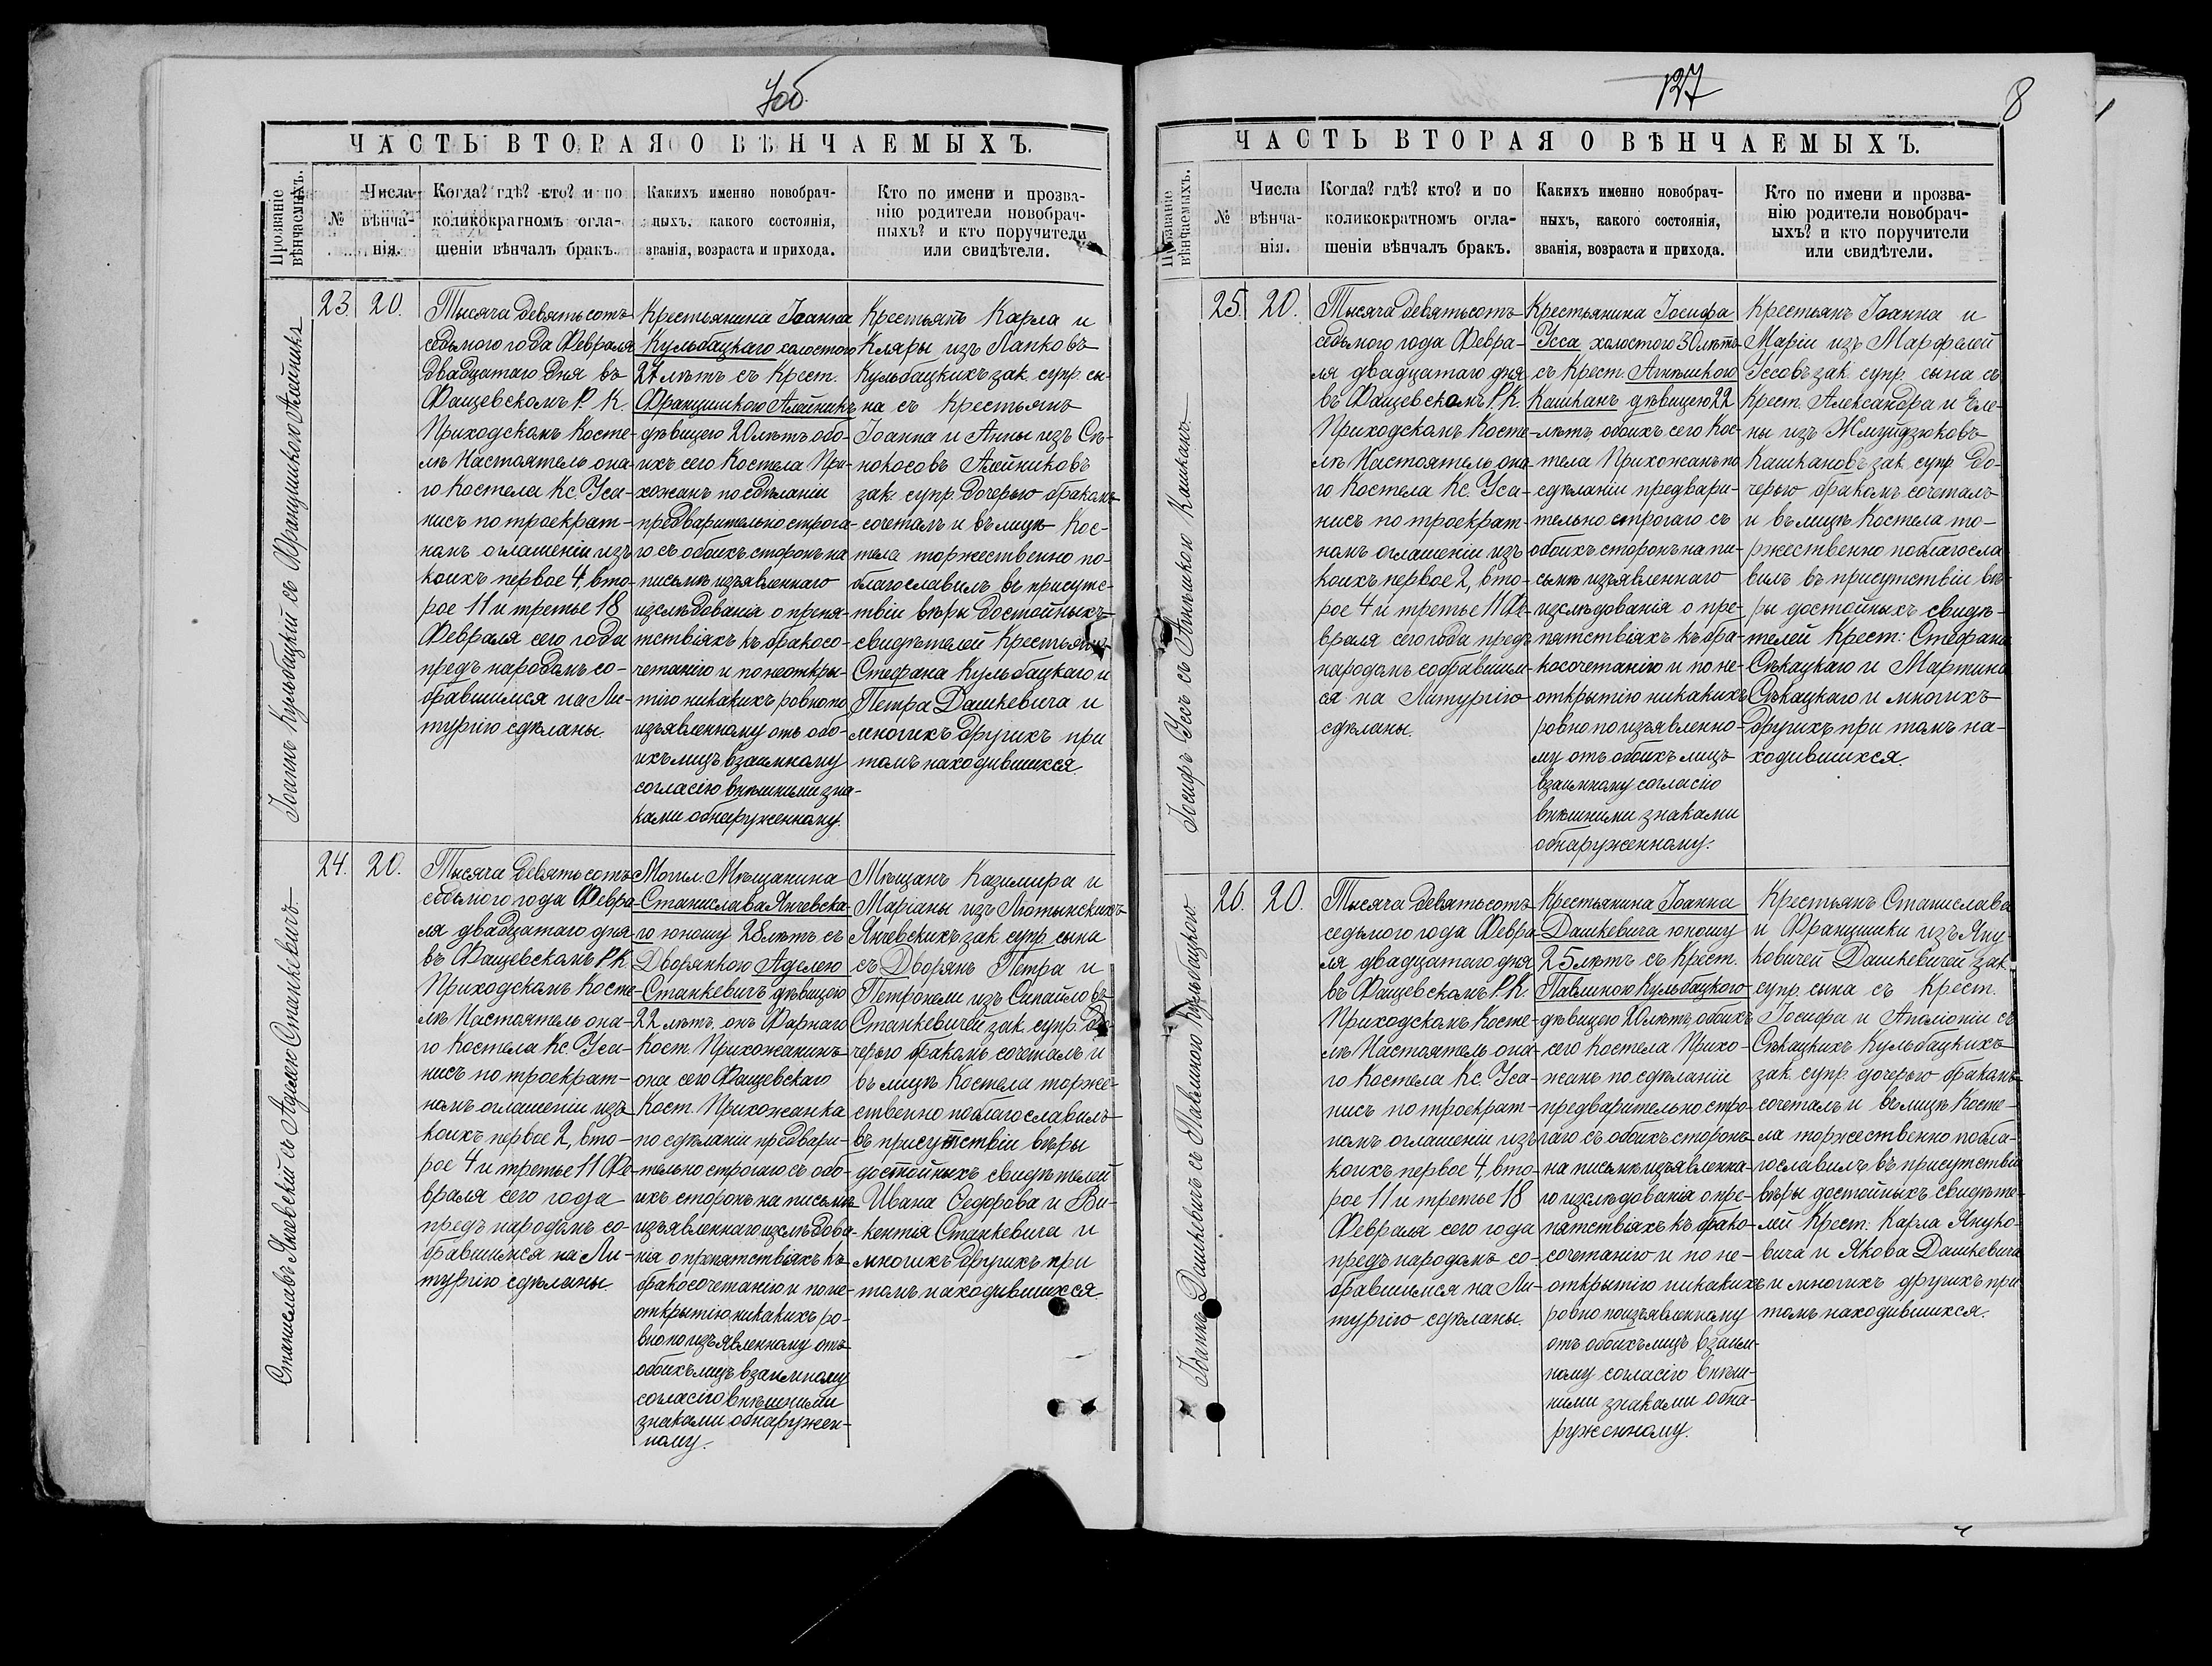 7об.
ЧАСТЬ ВТОРАЯ О ВѢНЧАЕМЫХЪ.
Прозваніе
вѣнчаемыхъ.
№
Числа
вѣнча-
нія.
Когда? гдѣ? кто? и по
коликократномъ огла-
шеніи вѣнчалъ бракъ.
Какихъ именно новобрач-
ныхъ, какого состоянія,
званія, возраста и прихода.
Кто по имени и прозва-
нію родители новобрач-
ныхъ? и кто поручители
или свидѣтели.
Іоаннъ Кульбацкій съ Францишкою Алейникъ
23.
20.
Тысяча девятьсотъ
седьмого года Февраля
двадцатаго дня въ
Фащевскомъ Р. К.
Приходскомъ Косте-
лѣ Настоятель она-
го Костела Кс. Уса-
нисъ по троекрат-
номъ оглашеніи изъ
коихъ первое 4, вто-
рое 11 и третье 18
Февраля сего года
предъ народомъ со-
бравшимся на Ли-
тургію сдѣланы.
Крестьянина Іоанна
Кульбацкаго холостого
27 лѣтъ съ Крест.
Францишкою Алейникъ
дѣвицею 20 лѣтъ обо-
ихъ сего Костела При-
хожанъ по сдѣланіи
предварительно строга-
го съ обоихъ сторонъ на
письмѣ изъявленнаго
изслѣдованія о препя-
тствіяхъ къ бракосо-
четанію и по неоткры-
тію никакихъ ровно по
изъявленному отъ обо-
ихъ лицъ взаимному
согласію внѣшними зна-
ками обнаруженному.
Крестьянъ Карла и
Кляры изъ Лапковъ
Кульбацкихъ зак. супр. сы-
на съ Крестьянъ
Іоанна и Анны изъ Сѣ-
нокосовъ Алейниковъ
зак. супр. дочерью бракомъ
сочеталъ и въ лицѣ Кос-
тела торжественно по-
благославилъ въ присутс-
твіи вѣры достойныхъ
свидѣтелей Крестьянъ
Стефана Кульбацкаго и
Петра Дашкевича и
многихъ другихъ при
томъ находившихся.
Станиславъ Янчевскій съ Аделею Станкевичъ.
24.
20.
Тысяча девятьсотъ
седьмого года Февра-
ля двадцатаго дня
въ Фащевскомъ Р. К.
Приходскомъ Косте-
лѣ Настоятель она-
го Костела Кс. Уса-
нисъ по троекрат-
номъ оглашеніи изъ
коихъ первое 2, вто-
рое 4 и третье 11 Фе-
враля сего года
предъ народомъ со-
бравшимся на Ли-
тургію сдѣланы.
Могил. Мѣщанина
Станислава Янчевска-
го юношу 28 лѣтъ съ
Дворянкою Аделею
Станкевичъ дѣвицею
22 лѣтъ, онъ Фарнаго
Кост. Прихожанинъ
она сего Фащевскаго
Кост. Прихожанка
по сдѣланіи предвари-
тельно строгаго съ обо-
ихъ сторонъ на письмѣ
изъявленнаго изслѣдова-
нія о препятствіяхъ къ
бракосочетанію и по не-
открытію никакихъ ро-
вно по изъявленному отъ
обоихъ лицъ взаимному
согласію внѣшними
знаками обнаружен-
ному.
Мѣщанъ Казимира и
Маріаны изъ Лютынскихъ
Янчевскихъ зак. супр. сына
съ Дворянъ Петра и
Петронели изъ Сипайловъ
Станкевичей зак. супр. до-
черью бракомъ сочеталъ и
въ лицѣ Костела торже-
ственно поблагославилъ
въ присутствіи вѣры
достойныхъ свидѣтелей
Ивана Седорова и Ви-
кентія Станкевича и
многихъ другихъ при
томъ находившихся.
127
8
ЧАСТЬ ВТОРАЯ О ВѢНЧАЕМЫХЪ.
Прозваніе
вѣнчаемыхъ.
№
Числа
вѣнча-
нія.
Когда? гдѣ? кто? и по
коликократномъ огла-
шеніи вѣнчалъ бракъ.
Какихъ именно новобрач-
ныхъ, какого состоянія,
званія, возраста и прихода.
Кто по имени и прозва-
нію родители новобрач-
ыхъ? и кто поручители
или свидѣтели.
Іосифъ Уссъ съ Агнѣшкою Кашканъ.
25.
20.
Тысяча девятьсотъ
седьмого года Февра-
ля двадцатаго дня
въ Фащевскомъ Р. К.
Приходскомъ Косте-
лѣ Настоятель она-
го Костела Кс. Уса-
нисъ по троекрат-
номъ оглашеніи изъ
коихъ первое 2, вто-
рое 4 и третье 11 Фе-
враля сего года предъ
народомъ собравшим-
ся на Литургію
сдѣланы.
Крестьянина Іосифа
Усса холостого 30 лѣтъ
съ Крест. Агнѣшкою
Кашканъ дѣвицею 22
лѣтъ, обоихъ сего Кос-
тела Прихожанъ по
сдѣланіи предвари-
тельно строгаго съ
обоихъ сторонъ на пи-
сьмѣ изъявленнаго
изслѣдованія о пре-
пятствіяхъ къ бра-
косочетанію и по не-
открытію никакихъ
ровно по изъявленно-
му отъ обоихъ лицъ
взаимному согласію
внѣшними знаками
обнаруженному.
Крестьянъ Іоанна и
Маріи изъ Марфелей
Уссовъ зак. супр. сына съ
Крест. Александра и Еле-
ны изъ Жмуйдзюковъ
Кашкановъ зак. супр. до-
черью бракомъ сочеталъ
и въ лицѣ Костела то-
ржественно поблагосла-
вилъ въ присутствіи вѣ-
ры достойныхъ свидѣ-
телей Крест: Стефана
Сѣкацкаго и Мартина
Сѣкацкаго и многихъ
другихъ при томъ на-
ходившихся.
Іоаннъ Дашкевичъ съ Павлиною Кульбацкою.
26.
20.
Тысяча девятьсотъ
седьмого года Февра-
ля двадцатаго дня
въ Фащевскомъ Р. К.
Приходскомъ Косте-
лѣ Настоятель она-
го Костела Кс. Уса-
нисъ по троекрат-
номъ оглашеніи изъ
коихъ первое 4, вто-
рое 11 и третье 18
Февраля сего года
предъ народомъ со-
бравшимся на Ли-
тургію сдѣланы.
Крестьянина Іоанна
Дашкевича юношу
25 лѣтъ съ Крест.
Павлиною Кульбацкою
дѣвицею 20 лѣтъ, обоихъ
сего Костела Прихо-
жанъ по сдѣланіи
предварительно стро-
гаго съ обоихъ сторонъ
на письмѣ изъявленна-
го изслѣдованія о пре-
пятствіяхъ къ брако-
сочетанію и по не-
открытію никакихъ
ровно по изъявленному
отъ обоихъ лицъ взаим-
ному согласію внѣш-
ними знаками обна-
руженному.
Крестьянъ Станислава
и Францишки изъ Яну-
ковичей Дашкевичей зак.
супр. сына съ Крест.
Іосифа и Аполоніи съ
Сѣкацкихъ Кульбацкихъ
зак. супр. дочерью бракомъ
сочеталъ и въ лицѣ Косте-
ла торжественно побла-
гославилъ въ присутствіи
вѣры достойныхъ свидѣте-
лей Крест: Карла Януко-
вича и Якова Дашкевича
и многихъ другихъ при
томъ находившихся.